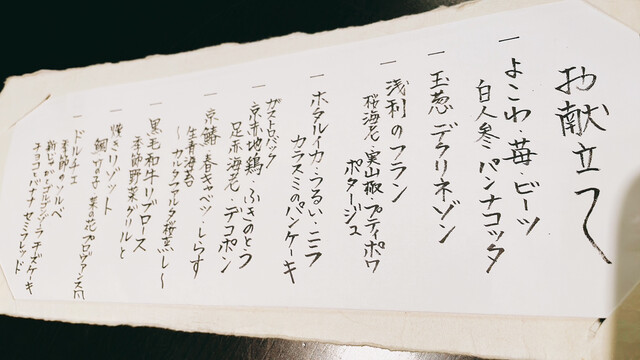 お献立て
一 よこわ・苺・ビーツ
白人参 パンナコッタ
一 玉葱 デクリネゾン
一 浅利のフラン
桜海老・実山椒・プティポワ
ポタージュ
一 ホタルイカ・うるい・ニラ
カラスミのパンケーキ
一 ガストロバック
京赤地鶏・ふきのとう
足赤海老・デコポン
一 京鰆・春キャベツ・しらす
生青海苔
〜カルタマルタ桜蒸し〜
一 黒毛和牛リブロース
季節野菜グリルと
一 焼きリゾット
鯛 菜の花 プロヴァンス風
一 ドルチェ
季節のソルベ
チーズケーキ
チョコ・バナナ セミフレッド